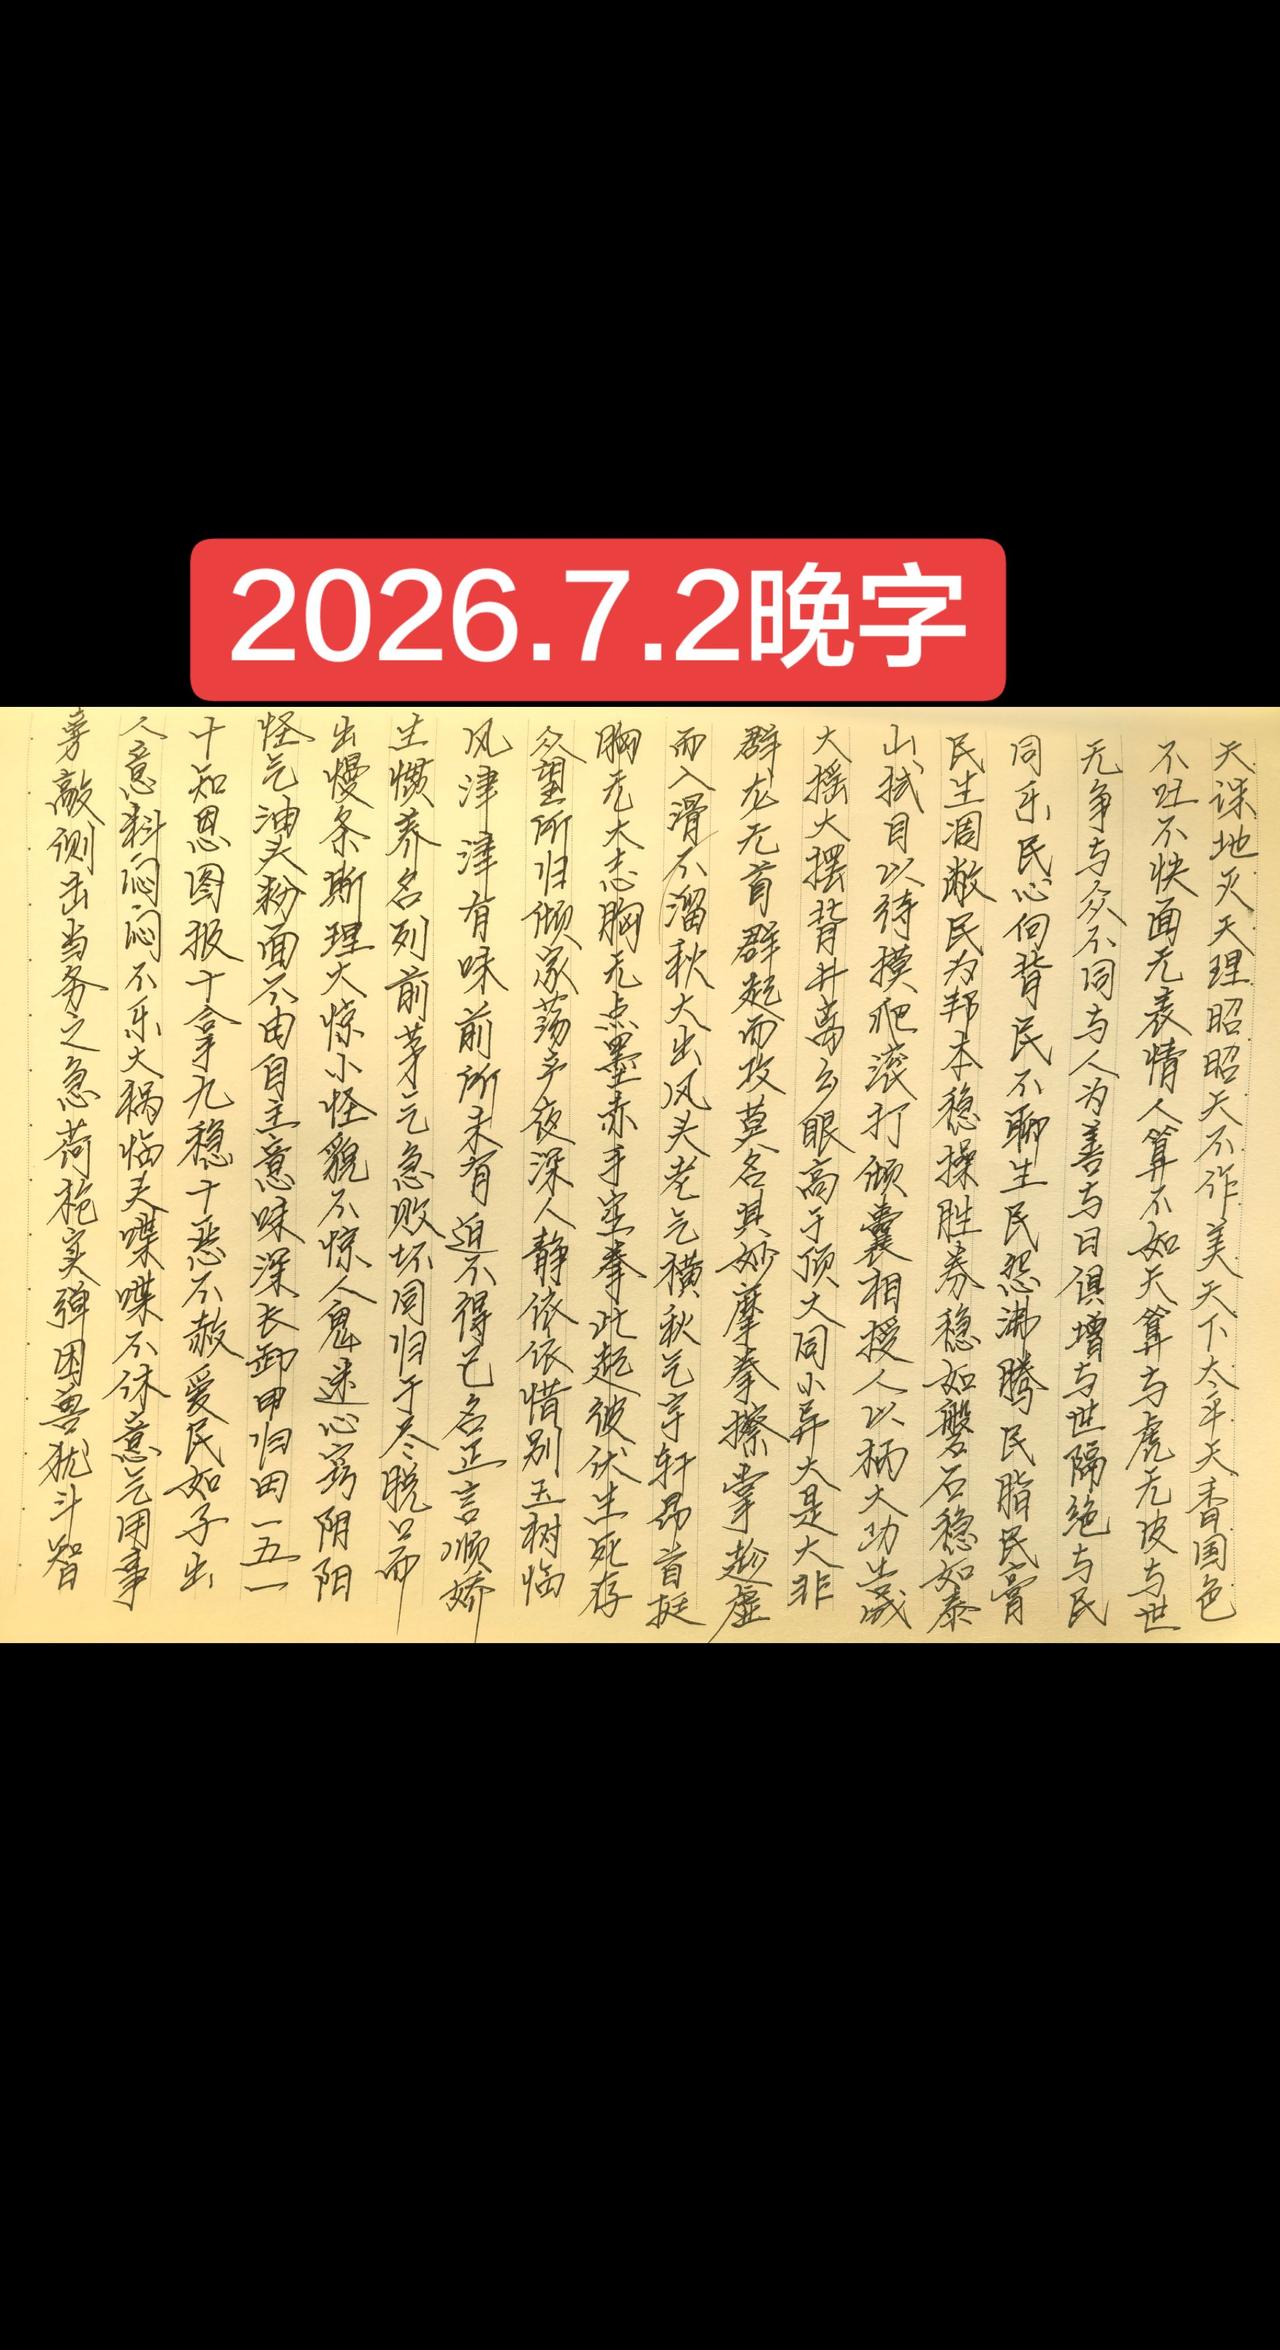 2026.7.2晚字
天诛地灭天理昭昭天不作美天下太平天香国色
不吐不快面无表情人算不如天算与虎无皮与世
无争与众不同与人为善与日俱增与世隔绝与民
同乐民心向背民不聊生民怨沸腾民脂民膏
民生凋敝民为邦本稳操胜券稳如磐石稳如泰
山拭目以待摸爬滚打倾囊相授人以柄大功告成
大摇大摆背井离乡眼高于顶大同小异大是大非
群龙无首群起而攻莫名其妙摩拳擦掌趁虚
而入滑不溜秋大出风头老气横秋气宇轩昂首挺
胸无大志胸无点墨赤手空拳此起彼伏生死存
众望所归倾家荡产夜深人静依依惜别玉树临
风津津有味前所未有迫不得已名正言顺娇
生惯养名列前茅气急败坏同归于尽脱口而
出慢条斯理大惊小怪貌不惊人鬼迷心窍阴阳
怪气油头粉面不由自主意味深长卸甲归田一五一
十知恩图报十拿九稳十恶不赦爱民如子出
人意料闷闷不乐大祸临头喋喋不休意气用事
旁敲侧击当务之急荷枪实弹困兽犹斗智